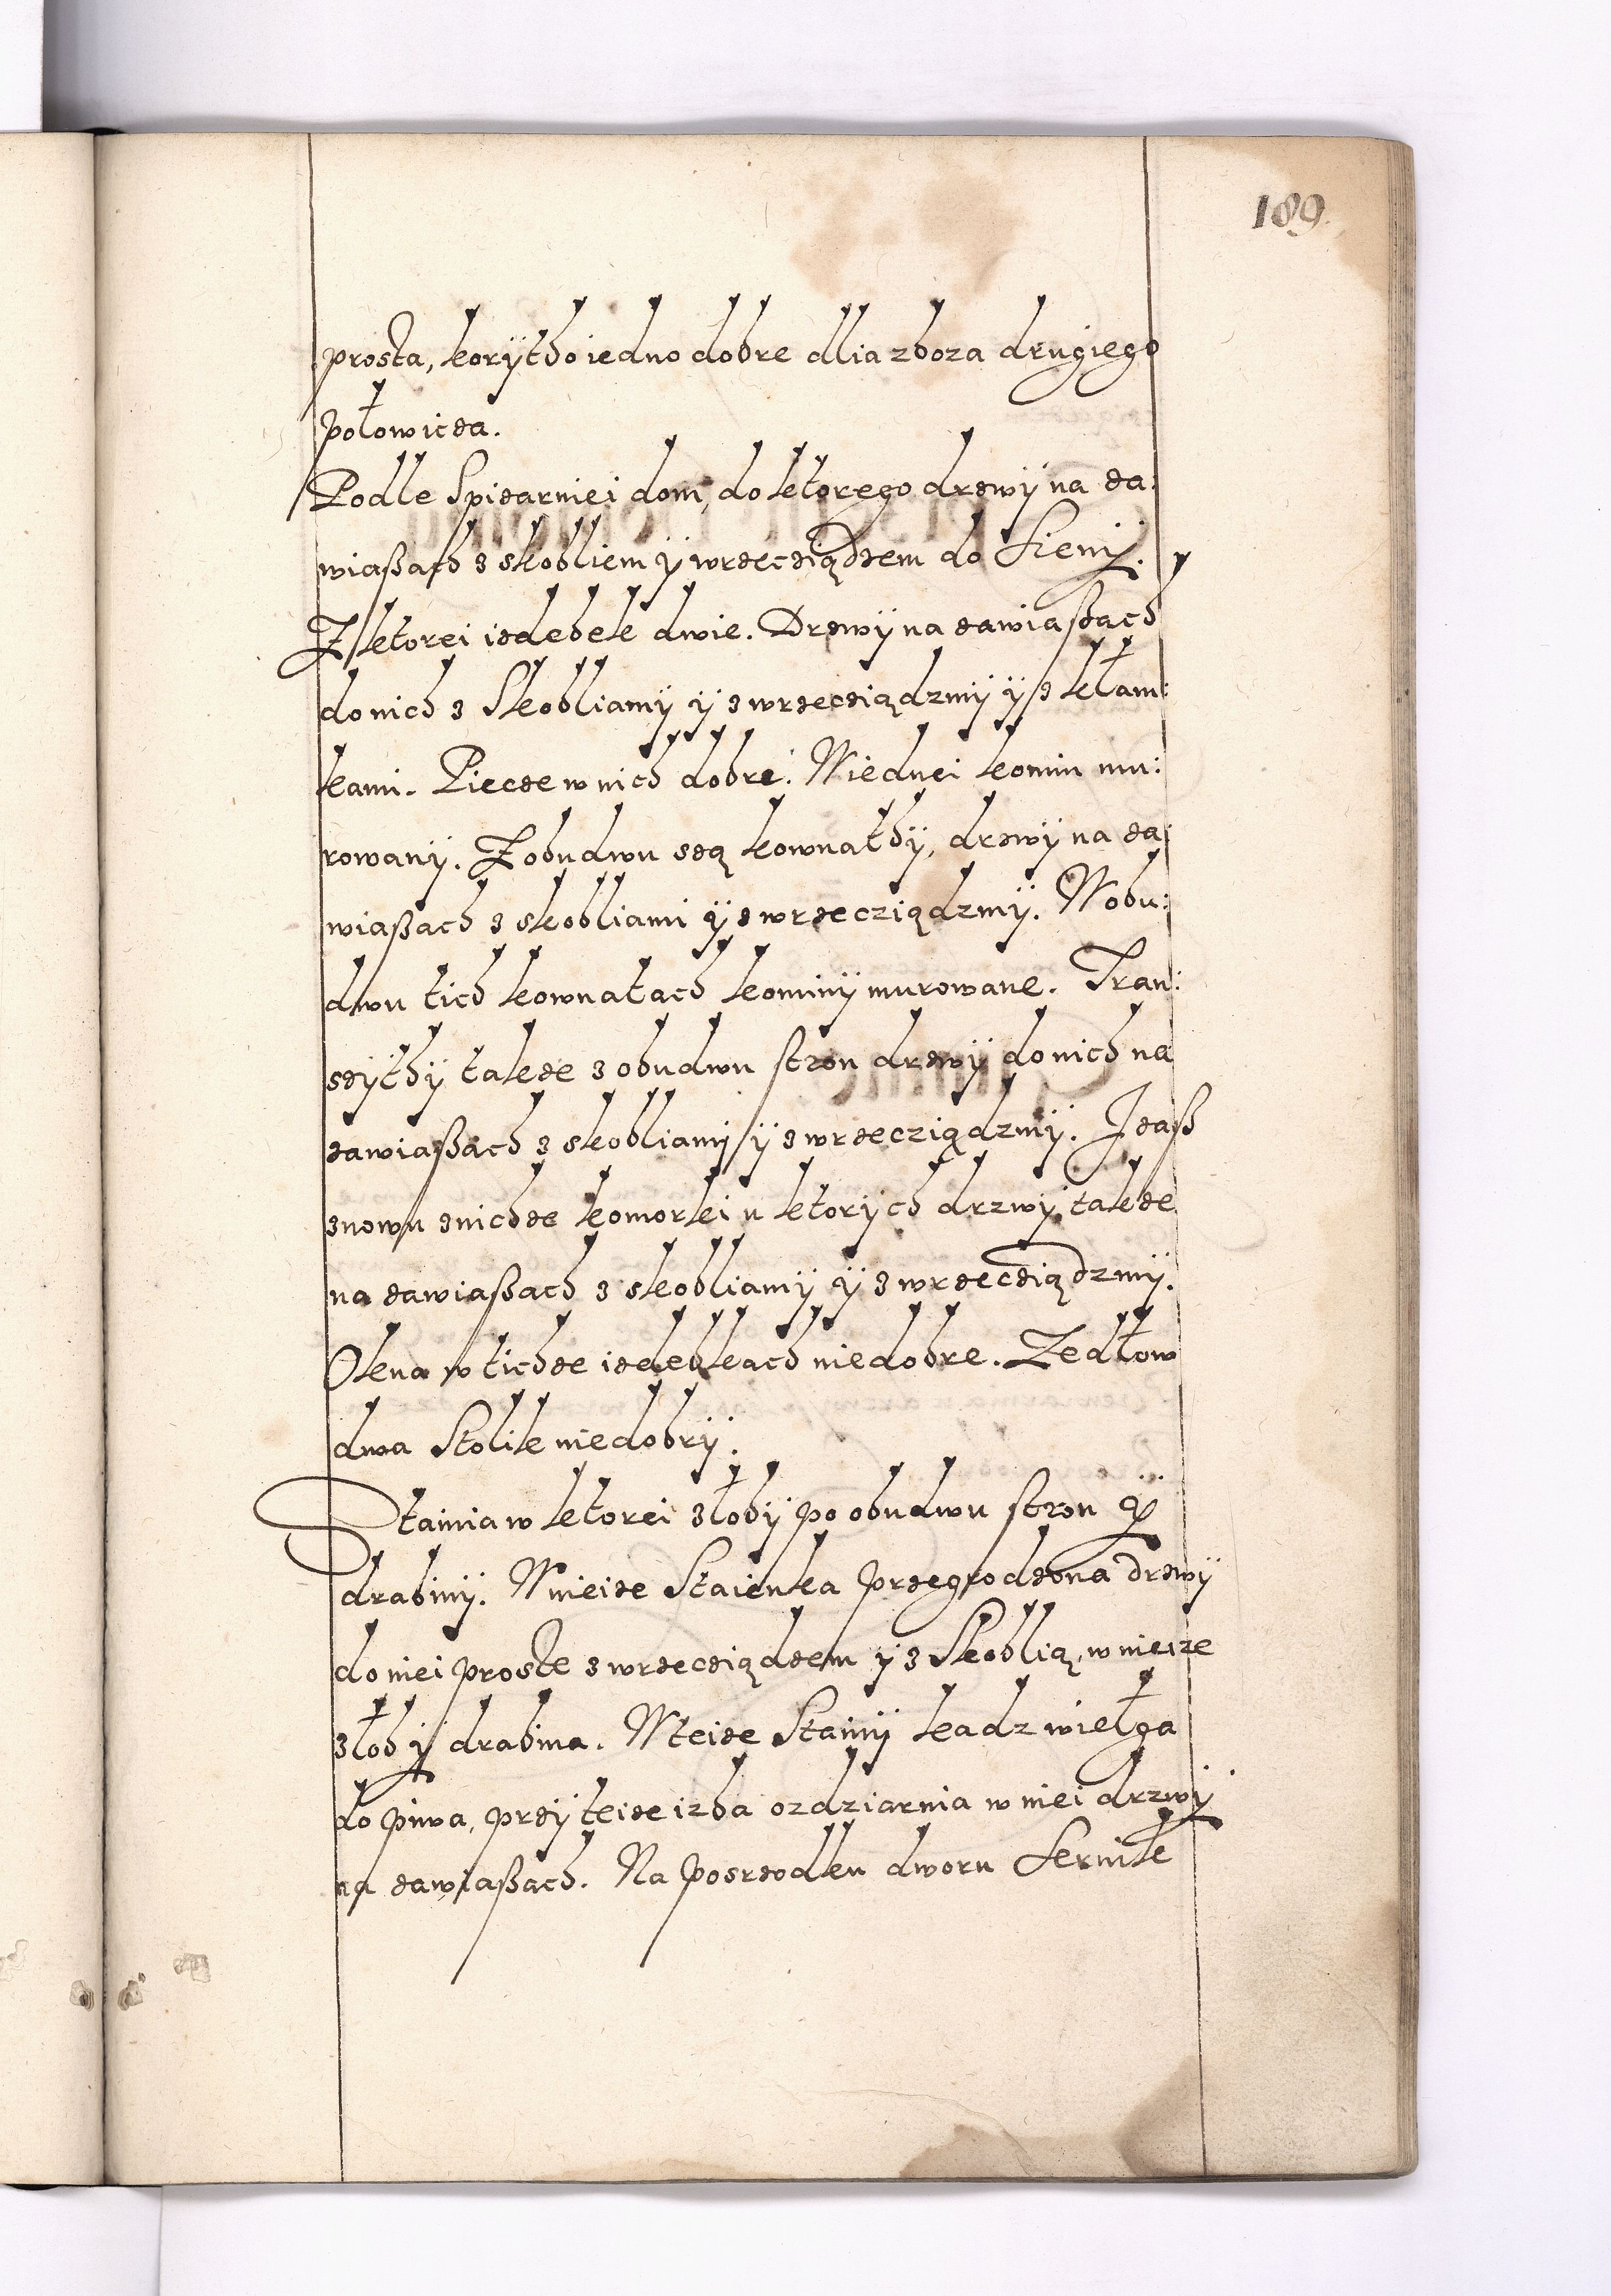 189
prosta, korÿtho iedno dobre dlia zboza drugiego
połowicza.
Podle Spizarniei dom, do ktorego drzwÿ na za:
wiaßach z skobliem ÿ wrzecziądzem do Sieny.
Z ktorei izdebek dwie. Drzwÿ na zawiaßach
do nich z Skobliamÿ ÿ z wrzecziądzmÿ ÿ z kłam:
kami. Piecze w nich dobre. W iednei komin mu:
rowanÿ. Z obudwu szą kownathÿ, drzwÿ na za:
wiaßach z skobliami ÿ z wrzecziądzmÿ. W obu:
dwu tich kownatach kominÿ murowane. Tran:
szÿthÿ takze z obudwu stron drzwÿ do nich na
zawiaßach z skobliamÿ ÿ z wrzecziądzmÿ. J zaß
znowu z nichze komorki u ktorÿch drzwÿ, takze
na zawiaßach z skobliamÿ ÿ z wrzecziądzmÿ.
Okna w tichze izdebkach niedobre. Zedłow
dwa Stolik niedobrÿ.
Stainia w ktorei złobÿ po obudwu stron ÿ
drabinÿ. W nieize Staienka przegrodzona drzwÿ
do niei proste z wrzecziądzem ÿ z Skoblią, w nieize
złob ÿ drabina. W teize Stainÿ kadz wielga
do piwa, przÿ teize izba ozdziarnia w niei drzwÿ
na zawiaßach. Na posrzodku dworu Sernik